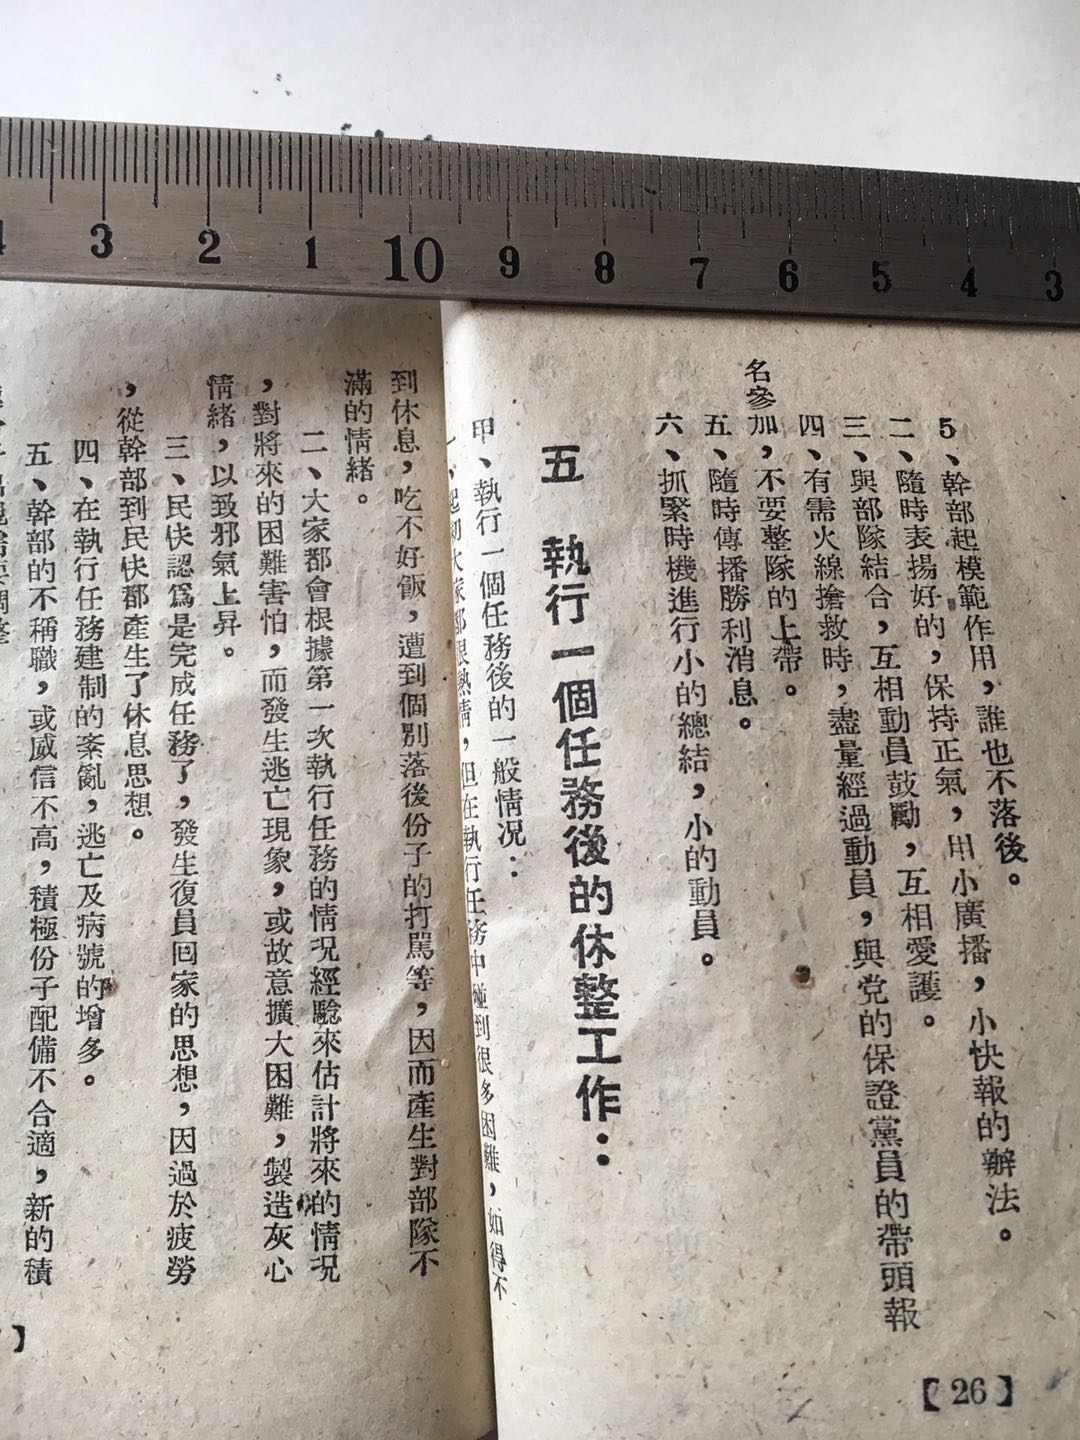 4 3 2 1 10 9 8 7 6 5 4 3
5、幹部起模範作用，誰也不落後。
二、隨時表揚好的，保持正氣，用小廣播，小快報的辦法。
三、與部隊結合，互相動員鼓勵，互相愛護。
四、有需火線搶救時，盡量經過動員，與党的保證黨員的帶頭報
名參加，不要整隊的上帶。
五、隨時傳播勝利消息。
六、抓緊時機進行小的總結，小的動員。
五 執行一個任務後的休整工作：
甲、執行一個任務後的一般情况：
一、起初大家都很熱情，但在執行任務中碰到很多困難，如得不
【26】
到休息，吃不好飯，遭到個別落後份子的打駡等，因而產生對部隊不
滿的情緒。
二、大家都會根據第一次執行任務的情况經驗來估計將來的情况
，對將來的困難害怕，而發生逃亡現象，或故意擴大困難，製造灰心
情緒，以致邪氣上昇。
三、民快認爲是完成任務了，發生復員囘家的思想，因過於疲勞
，從幹部到民快都產生了休息思想。
四、在執行任務建制的紊亂，逃亡及病號的增多。
五、幹部的不稱職，或威信不高，積極份子配備不合適，新的積
】